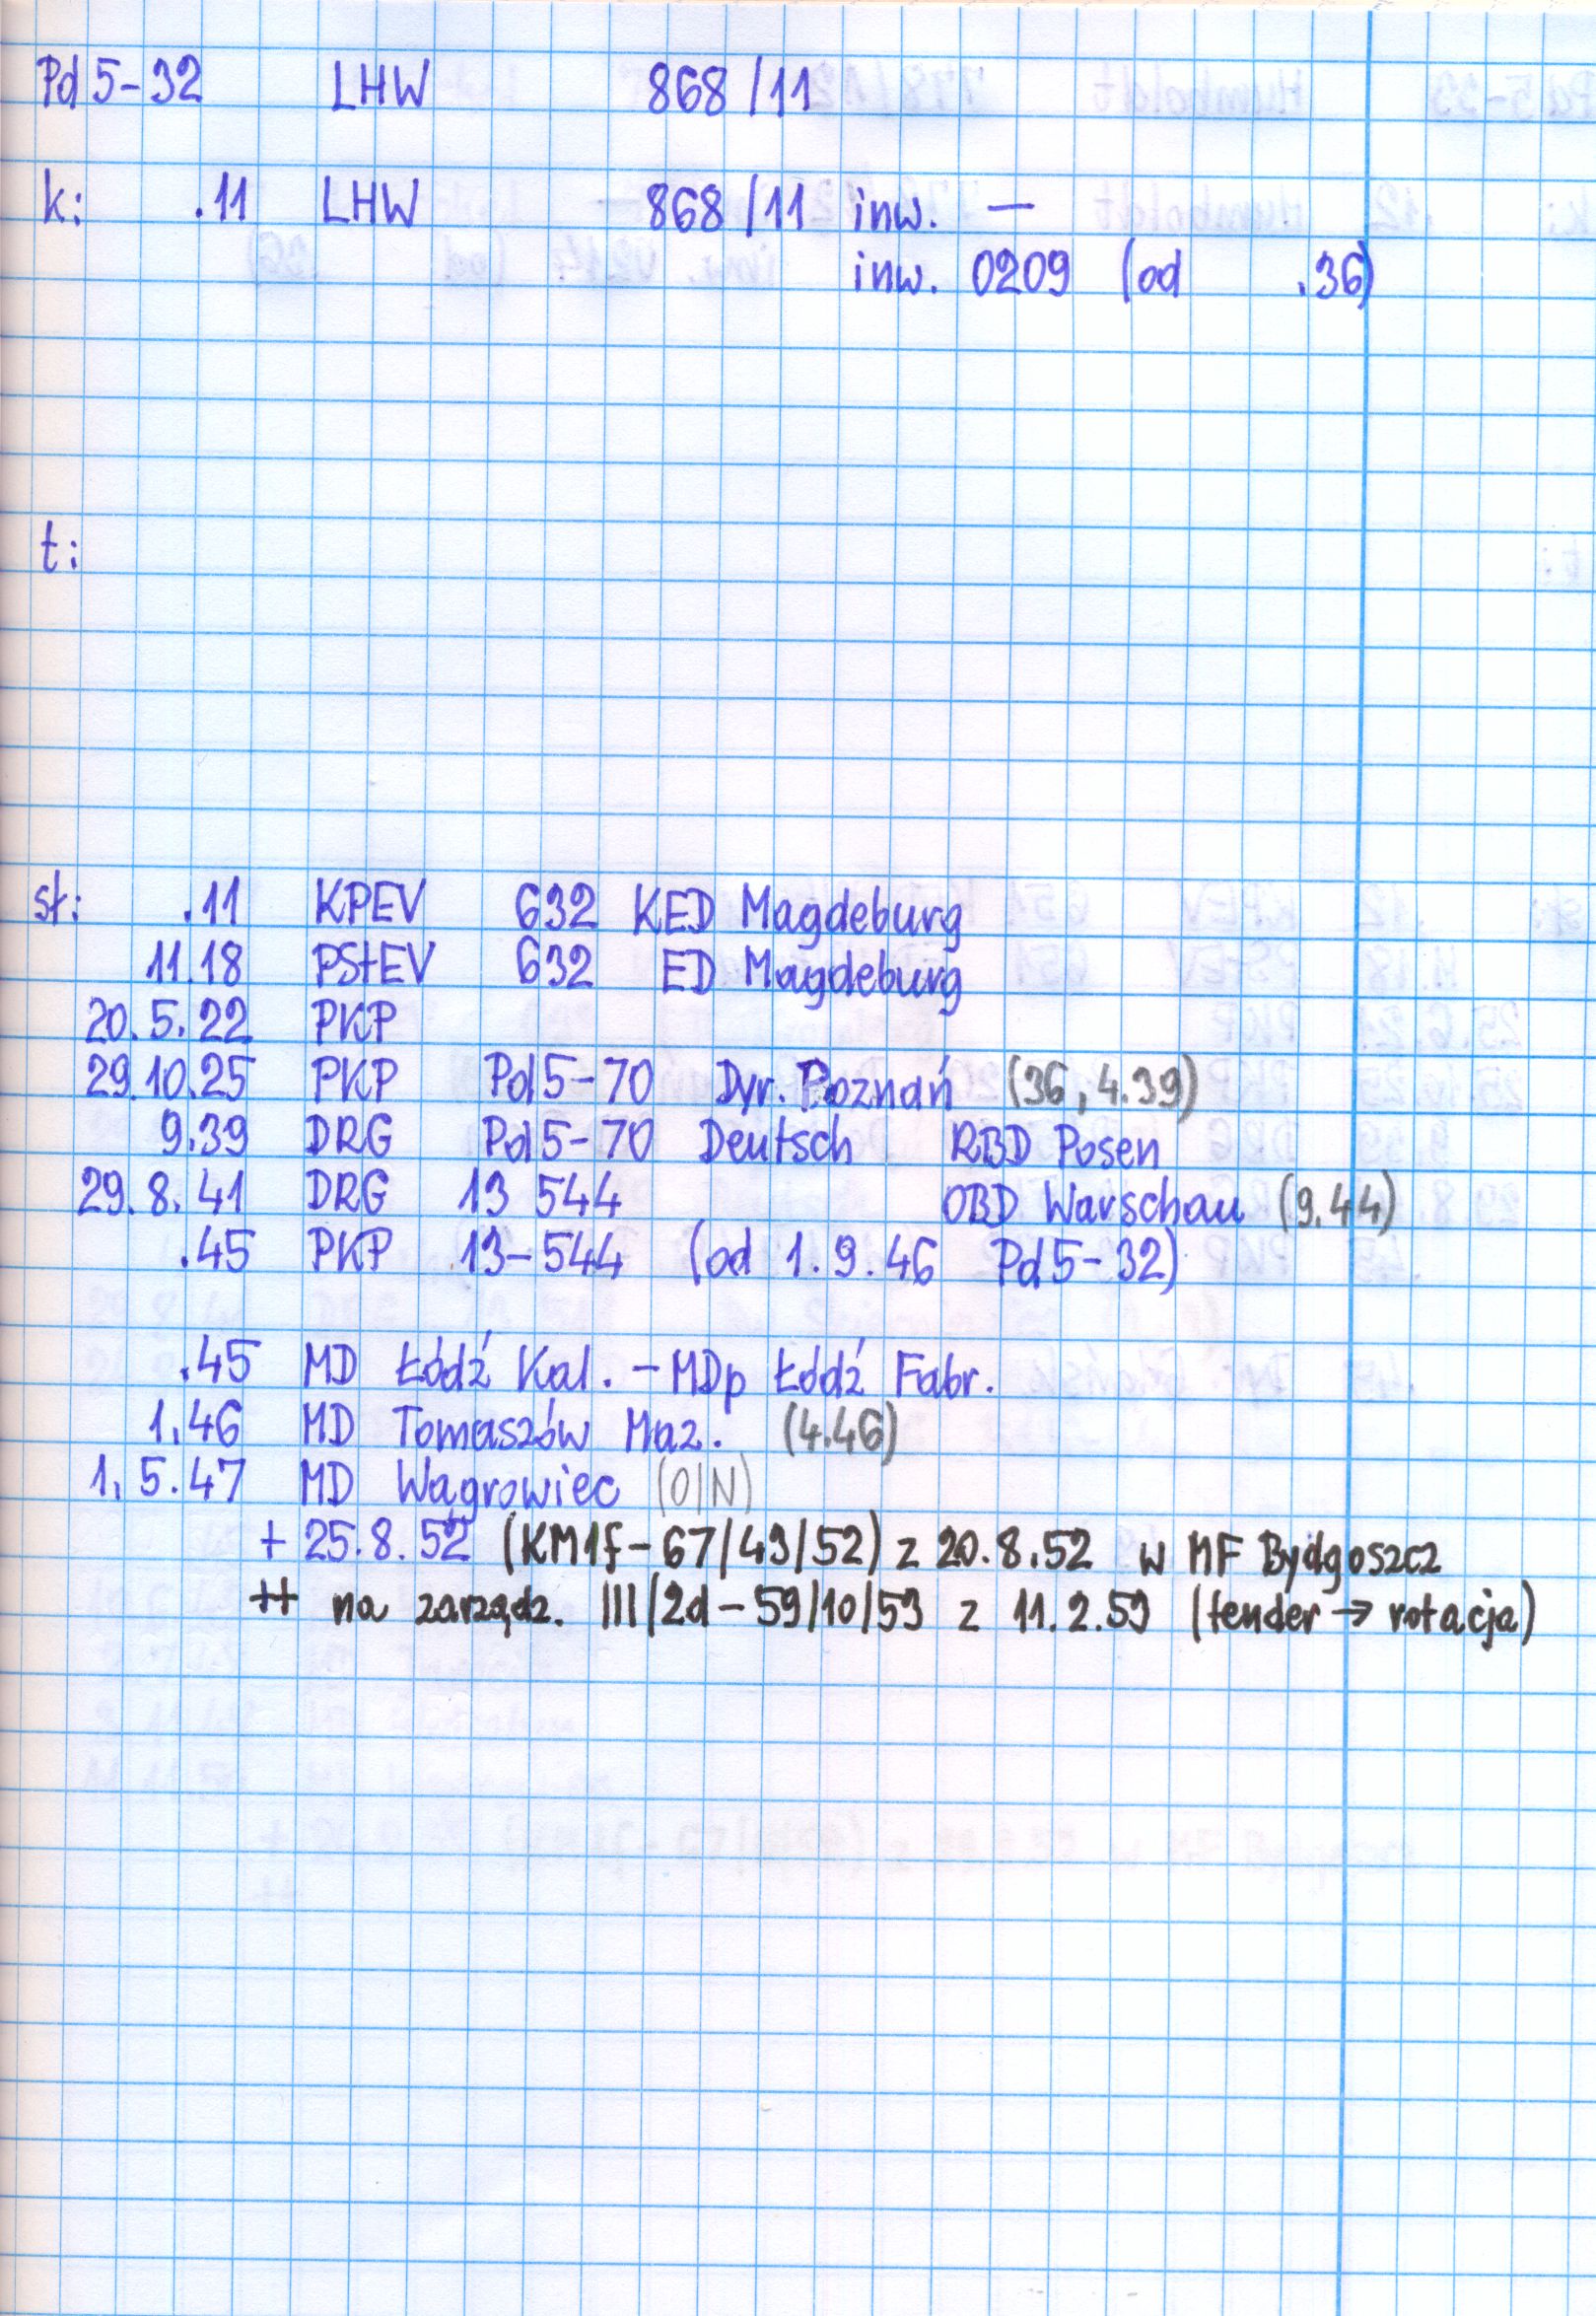 Pd5-32 LHW 868/11
k: .11 LHW 868/11 inw. —
inw. 0209 (od .36)
t:
st: .11 KPEV 632 KED Magdeburg
11.18 PStEV 632 ED Magdeburg
20.5.22 PKP
29.10.25 PKP Pd5-70 Dyr. Poznań (36, 4.39)
9.39 DRG Pd5-70 Deutsch RBD Posen
29.8.41 DRG 13 544 OBD Warschau (9.44)
.45 PKP 13-544 (od 1.9.46 Pd5-32)
.45 MD Łódź Kal. - MDp Łódź Fabr.
1.46 MD Tomaszów Maz. (4.46)
1.5.47 MD Wągrowiec (O/N)
+ 25.8.52 (KM1f-67/49/52) z 20.8.52 w MF Bydgoszcz
++ na zarządz. III/2d-59/10/59 z 11.2.59 (tender → rotacja)